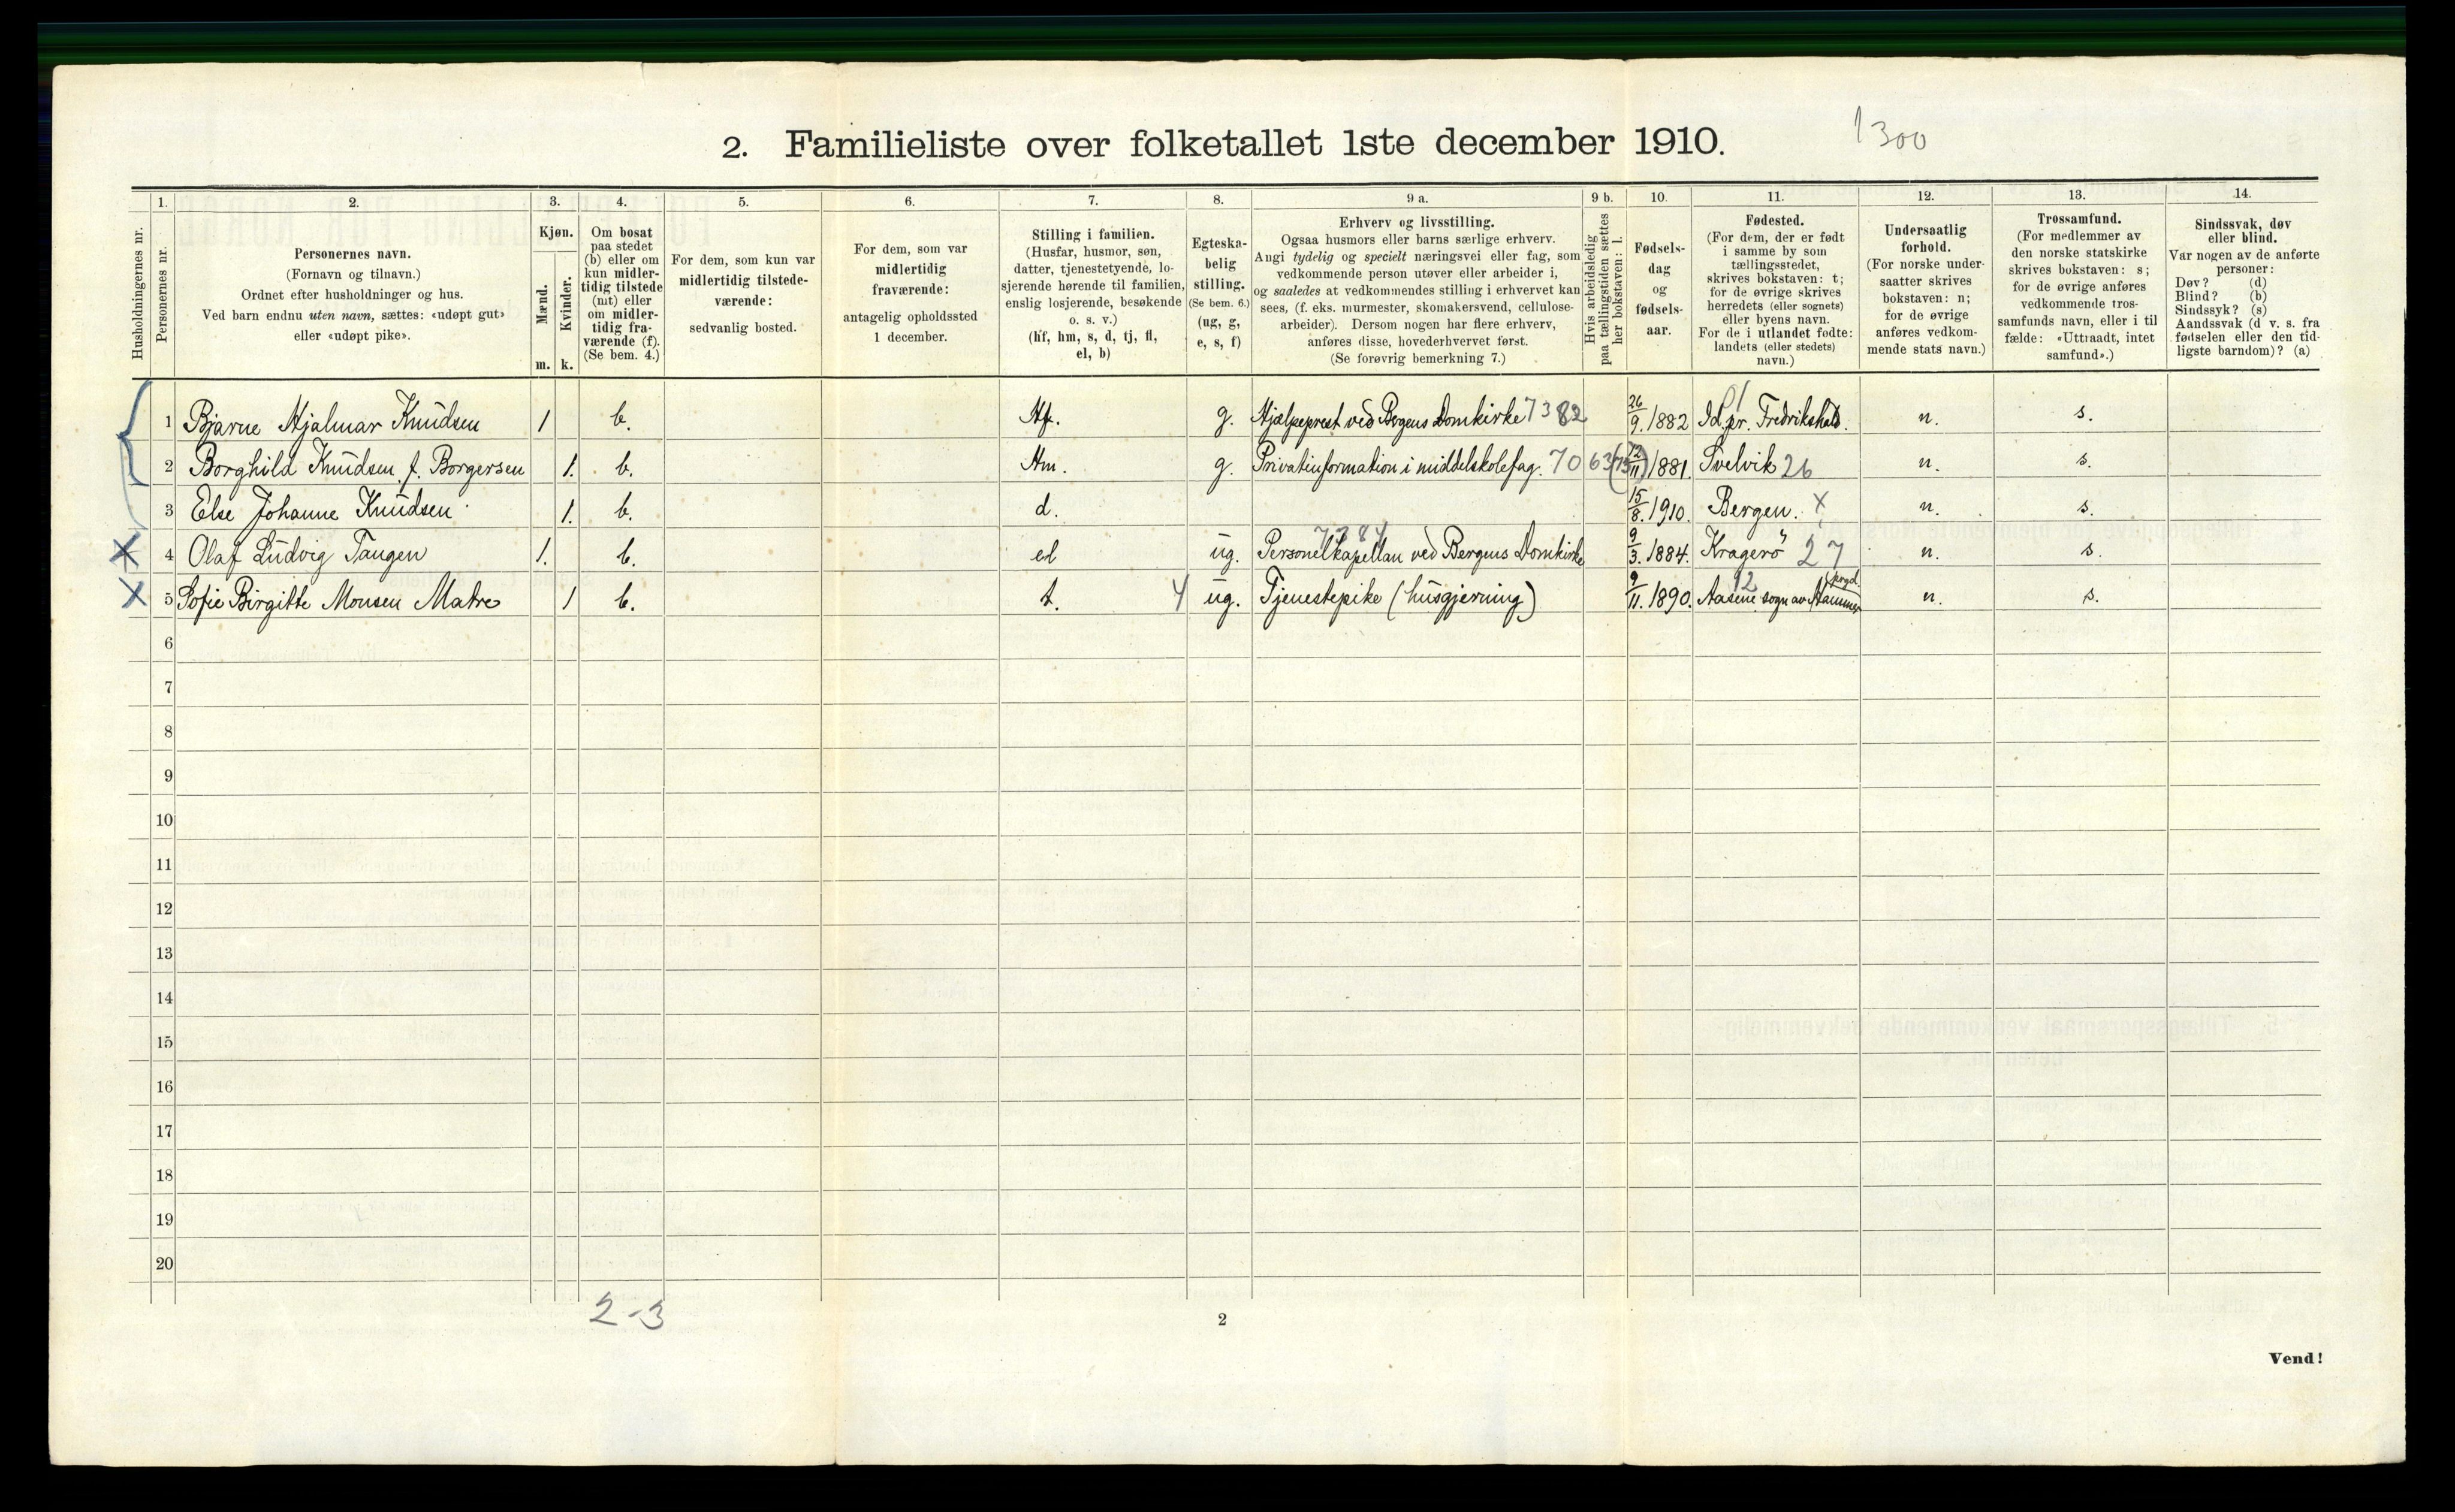 1300
2. Familieliste over folketallet 1ste december 1910.
1. 2. 3. 4. 5. 6. 7. 8. 9 a. 9 b. 10. 11. 12. 13. 14.
Husholdningernes nr.
Personernes nr.
Personernes navn.
(Fornavn og tilnavn.)
Ordnet efter husholdninger og hus.
Ved barn endnu uten navn, sættes: «udøpt gut»
eller «udøpt pike».
Kjøn.
Mænd.
Kvinder.
m. k.
Om bosat
paa stedet
(b) eller om
kun midler-
tidig tilstede
(mt) eller
om midler-
tidig fra-
værende (f).
(Se bem. 4.)
For dem, som kun var
midlertidig tilstede-
værende:
sedvanlig bosted.
For dem, som var
midlertidig
fraværende:
antagelig opholdssted
1 december.
Stilling i familien.
(Husfar, husmor, søn,
datter, tjenestetyende, lo-
sjerende hørende til familien,
enslig losjerende, besøkende
o. s. v.)
(hf, hm, s, d, tj, fl,
el, b)
Egteska-
belig
stilling.
(Se bem. 6.)
(ug, g,
e, s, f)
Erhverv og livsstilling.
Ogsaa husmors eller barns særlige erhverv.
Angi tydelig og specielt næringsvei eller fag, som
vedkommende person utøver eller arbeider i,
og saaledes at vedkommendes stilling i erhvervet kan
sees, (f. eks. murmester, skomakersvend, cellulose-
arbeider). Dersom nogen har flere erhverv,
anføres disse, hovederhvervet først.
(Se forøvrig bemerkning 7.)
Hvis arbeidsledig
paa tællingstiden sættes
her bokstaven: l.
Fødsels-
dag
og
fødsels-
aar.
Fødested.
(For dem, der er født
i samme by som
tællingsstedet,
skrives bokstaven: t;
for de øvrige skrives
herredets (eller sognets)
eller byens navn.
For de i utlandet fødte:
landets (eller stedets)
navn.)
Undersaatlig
forhold.
(For norske under-
saatter skrives
bokstaven: n;
for de øvrige
anføres vedkom-
mende stats navn.)
Trossamfund.
(For medlemmer av
den norske statskirke
skrives bokstaven: s;
for de øvrige anføres
vedkommende tros-
samfunds navn, eller i til
fælde: «Uttraadt, intet
samfund».)
Sindssvak, døv
eller blind.
Var nogen av de anførte
personer:
Døv? (d)
Blind? (b)
Sindssyk? (s)
Aandssvak (d v. s. fra
fødselen eller den tid-
ligste barndom)? (a)
1 Bjarne Hjalmar Knudsen 1 b. Hf. g. Hjælpeprest ved Bergens Domkirke 7382 26/9. 1882 Id. pr. Fredrikshald. 01 n. s.
2 Borghild Knudsen f. Borgersen 1. b. Hm. g. Privatinformation i middelskolefag. 7063 1881. Svelvik 26 n. s.
3 Else Johanne Knudsen 1. b. d. 15/8. 1910. Bergen. x n. s.
x 4 Olaf Ludvig Tangen 1. b. el ug. Personelkapellan ved Bergens Domkirke 7384 9/3. 1884. Kragerö 27 n. s.
x 5 Sofie Birgitte Monsen Matre 1 b. t. 4 ug. Tjenestepike (husgjerning) 9/11. 1890. Aasene sogn av Hammer prgd. 12 n. s.
6
7
8
9
10
11
12
13
14
15
16
17
18
19
20
2-3
2
Vend!